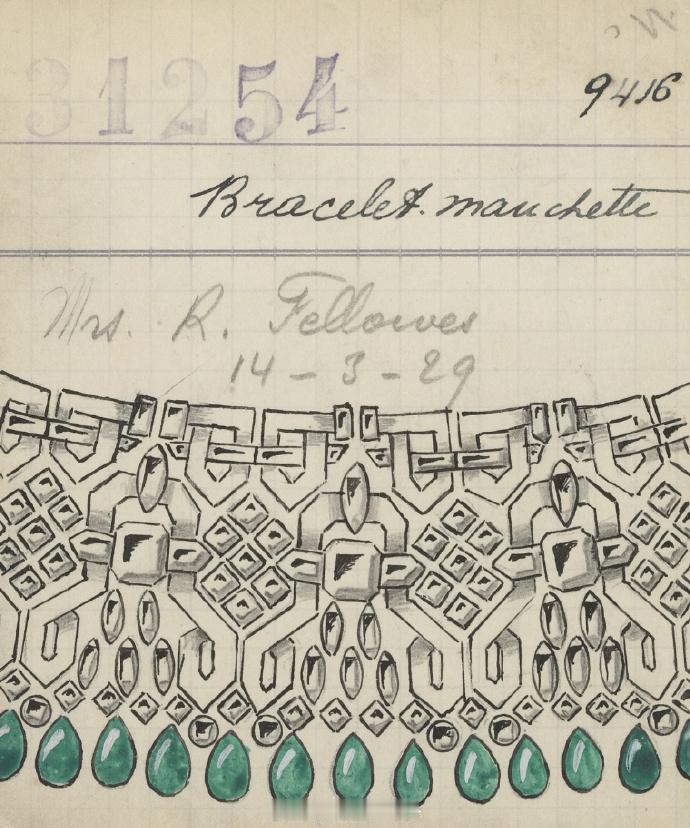 31254
9416
Bracelet. manchette
Mrs. R. Fellowes
14-3-29